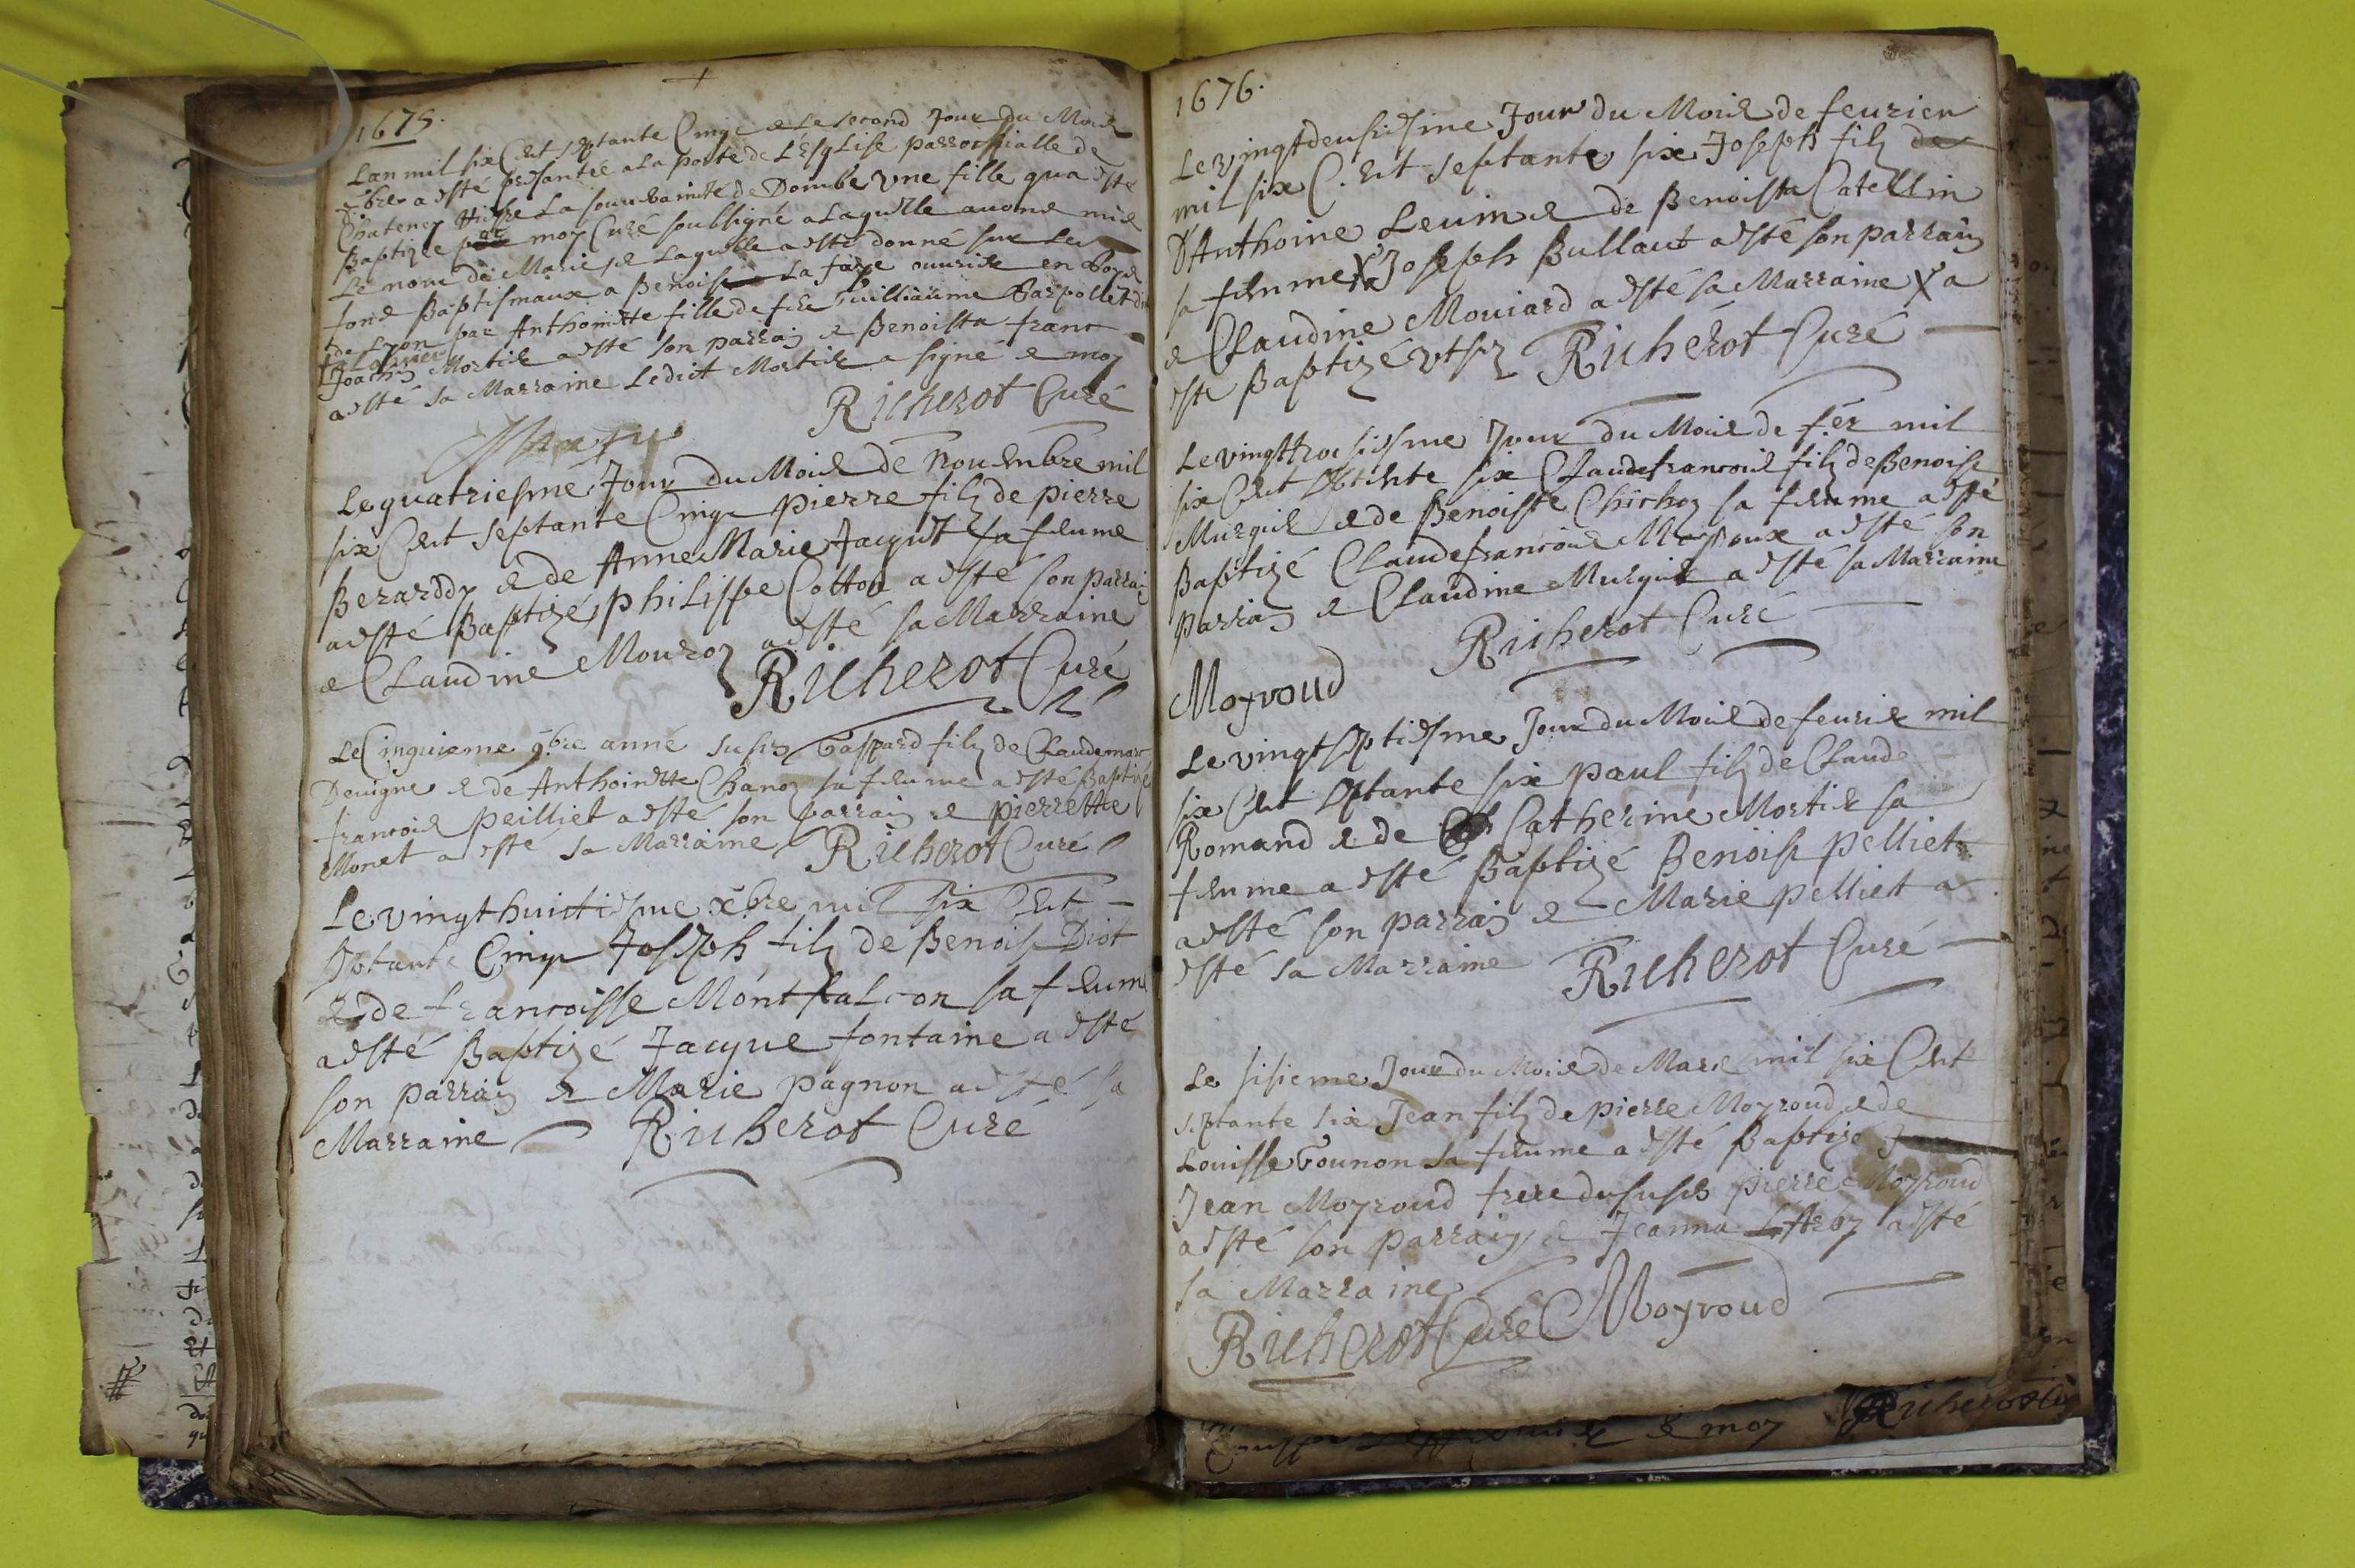 1675.
Lan mil six Cent septante Cinq & le second Jour du Mois
9bre a esté presantée a la porte de L'Esglise parroissialle de
Chateney riere La souverainté de Dombe une fille qua esté
Baptizée par moy Curé soubsigné a Laquelle avons mis
Le nom de Marie & Laquelle a esté donné sur Les
fons Baptismaux a Benoist La ouvrier en soye
de Lyon par Anthoinette fille de feu Guilliaume
Joachin Mortier a esté son parrain & Benoista franc
a esté sa Marraine Ledict Mortier a signé & moy
Richerot Curé
Le quatriesme Jour du Mois de Novembre mil
six Cent Septante Cinq Pierre filz de pierre
Berarddy & de Anne Marie Jaquet sa femme
a esté Baptizé philippe Cotton a esté son parrain
& Claudine Mouroz a esté sa Marraine
Richerot Curé
Le Cinquieme 9bre anné susdit Gaspard filz de Claudemar
Devigne & de Anthoinette Chanoz sa femme a esté Baptizé
francois peilliet a esté son parrain & pierrette
Monet a esté sa Marraine Richerot Curé
Le vingthuictiesme xbre mil six Cent
septante Cinq Joseph filz de Benoist Diot
& de francoisse Montfalcon sa femme
a esté Baptizé Jacque fontaine a esté
son parrain & Marie pagnon a esté sa
Marraine Richerot Curé
1676.
Le vingtdeusiesme Jour du Mois de feurier
mil six C. ent septante six Joseph filz de
D'Anthoine Levin & de Benoista Catellin
sa femme X Joseph Bullaud a esté son parrain
& Claudine Mouiard a esté sa Marraine X a
esté Baptizé vtsz Richerot Curé
Le vingttroisiesme Jour du Mois de fer mil
six Cent septente six Claudefrancois filz de Benoist
Murguis & de Benoiste Chichoz sa femme a esté
Baptizé Claudefrancois a esté son
parrain & Claudine Murguis a esté sa Marraine
Richerot Curé
Moyroud
Le vingtseptiesme Jour du Mois de feurier mil
six Cent septante six paul filz de Claude
Romand & de Catherine Mortier sa
femme a esté Baptizé Benoist pelliet
a esté son parrain & Marie pelliet a
esté sa Marraine Richerot Curé
Le sisieme Jour du Mois de Mars mil six Cent
septante six Jean filz de pierre Moyroud & de
Louisse Gounon sa femme a esté Baptizé
Jean Moyroud frere du susdit pierre Moyroud
a esté son parrain & Jeanna a esté
sa Marraine
Richerot Curé Moyroud
& moy Richerot